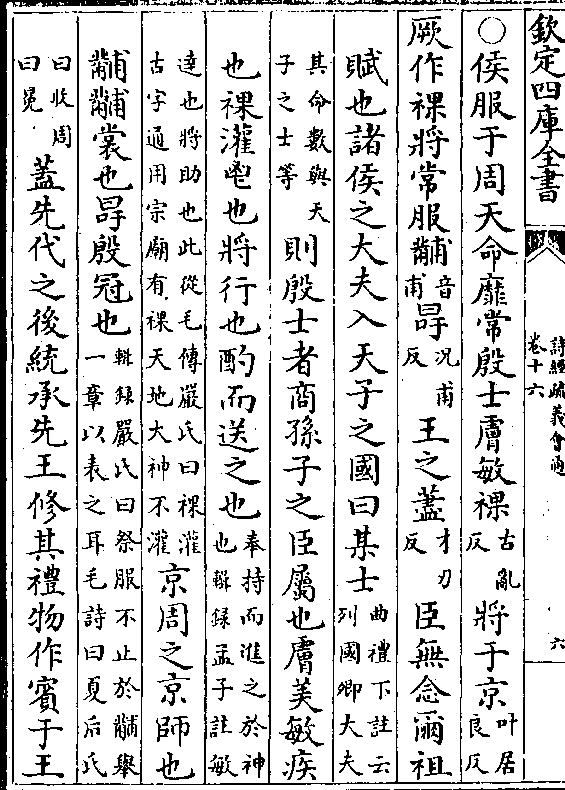 欽定四庫全書
詩經疏義會通
卷十六
六
○侯服于周天命靡常殷士膚敏祼古亂反將于京叶居良反
厥作祼將常服黼音甫冔況甫反王之藎才刃反臣無念爾祖
賦也諸侯之大夫入天子之國曰某士曲禮下註云列國卿大夫
其命數與天子之士等則殷士者商孫子之臣屬也膚美敏疾
也祼灌鬯也將行也酌而送之也奉持而進之於神也輯錄孟子註敏
達也將助也此從毛傳嚴氏曰祼灌古字通用宗廟有祼天地大神不灌京周之京師也
黼黼裳也冔殷冠也輯錄嚴氏曰祭服不止於黼舉一章以表之耳毛詩曰夏后氏
曰收周曰冕蓋先代之後統承先王修其禮物作賓于王